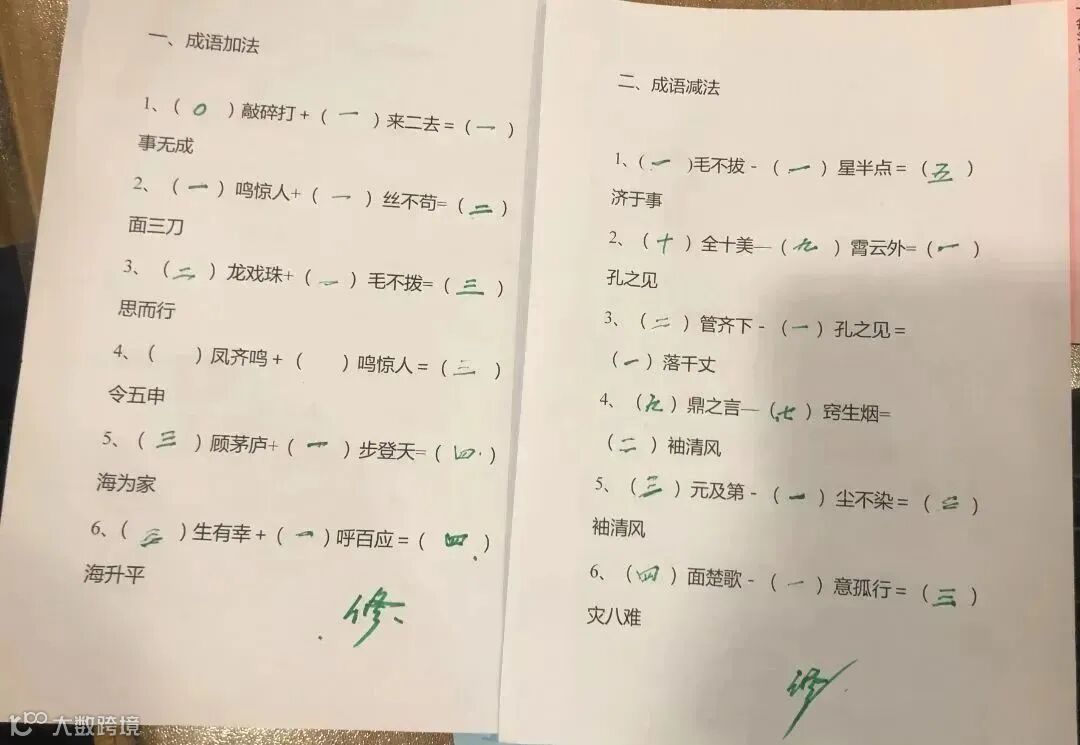 一、成语加法
1、（ 0 ）敲碎打+（ 一 ）来二去=（一）
事无成
2、（一）鸣惊人+（ 一 ）丝不苟=（二）
面三刀
3、（二）龙戏珠+（一）毛不拨=（三）
思而行
4、（ ）凤齐鸣+（ ）鸣惊人=（三）
令五申
5、（三）顾茅庐+（一）步登天=（四.）
海为家
6、（三）生有幸+（一）呼百应=（四.）
海升平
修
二、成语减法
1、(一 )毛不拔-（一）星半点=（五）
济于事
2、（十）全十美—（九）霄云外=（一）
孔之见
3、（二）管齐下-（一）孔之见=
（一）落千丈
4、（九）鼎之言—（七）窍生烟=
（二）袖清风
5、（三）元及第-（一）尘不染=（二）
袖清风
6、（四）面楚歌-（一）意孤行=（三）
灾八难
修
大数跨境